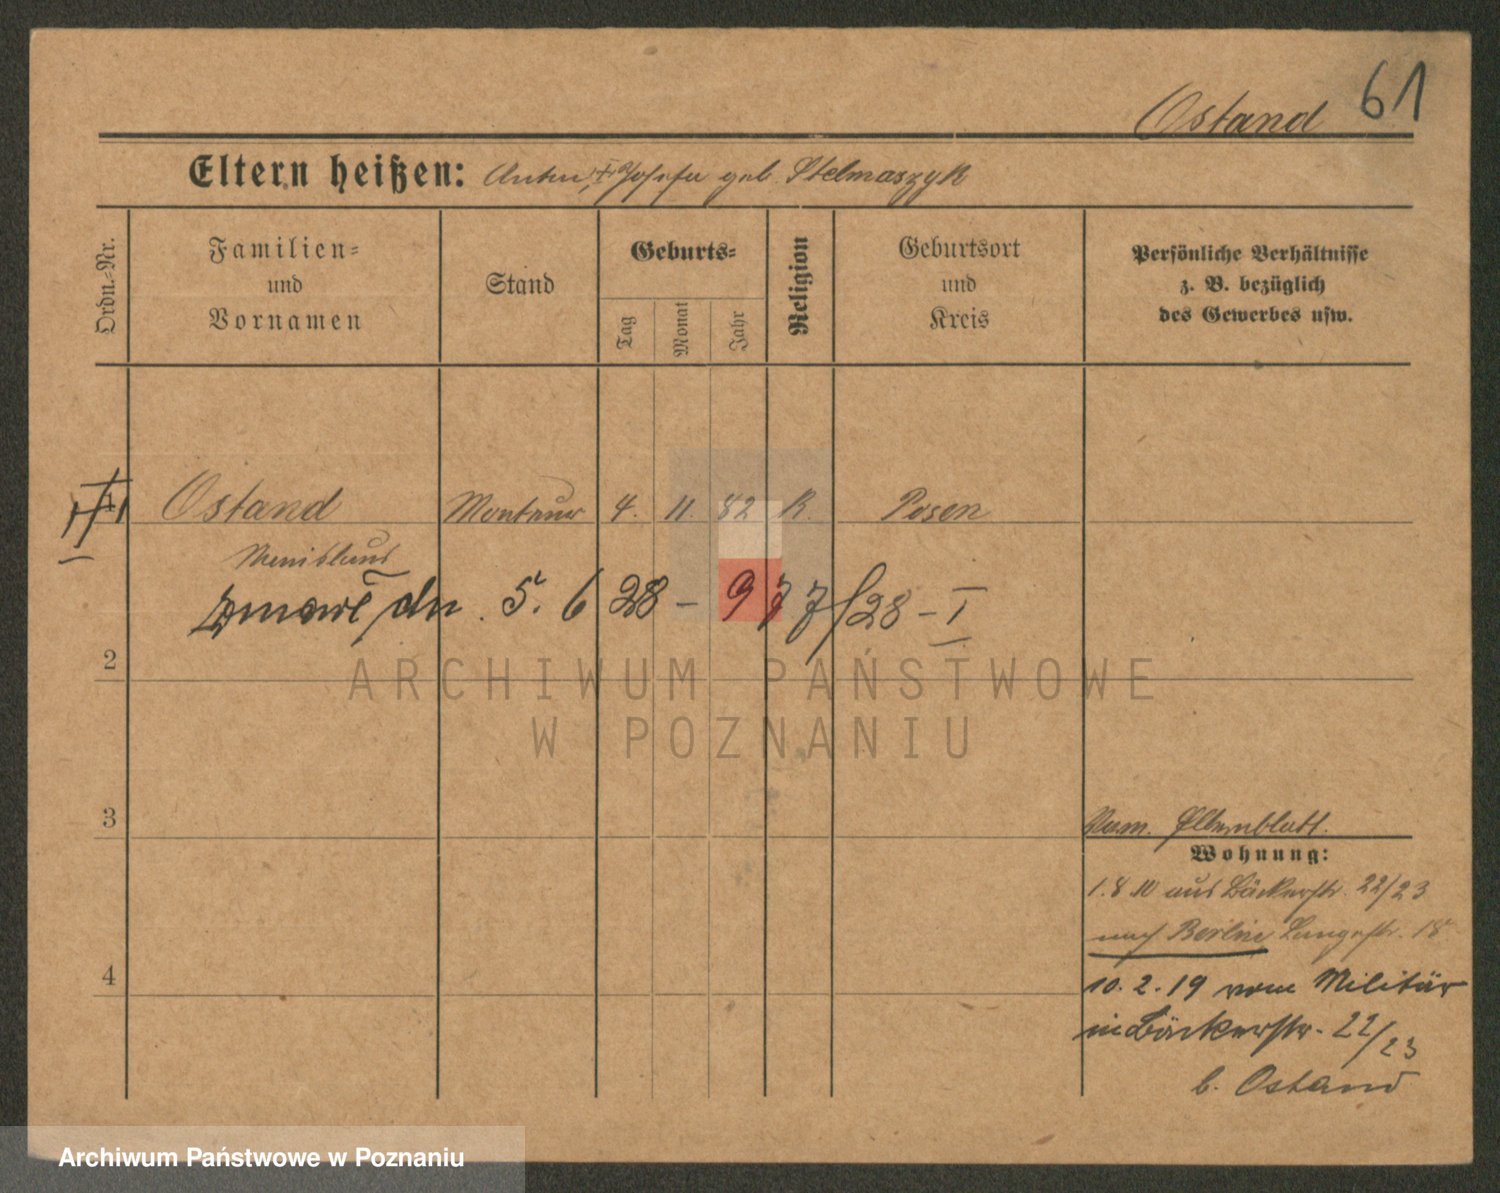 61
Ostand
Eltern heißen: Anton, † Josefa geb. Stelmaszyk
Ordn.-Nr.
Familien- und Vornamen
Stand
Geburts-
Tag
Monat
Jahr
Religion
Geburtsort und Kreis
Persönliche Verhältnisse z. B. bezüglich des Gewerbes usw.
1 Ostand Monteur 4. 11. 82 K. Posen
zmarł dn. 5. 6 28 – 977/28 – I
2
3
4
Elternblatt.
Wohnung:
1.8.10 aus Bäckerstr. 22/23
nach Berlin Langestr. 18
10.2.19 vom Militär
in Bäckerstr. 22/23
b. Ostand
ARCHIWUM PAŃSTWOWE
W POZNANIU
Archiwum Państwowe w Poznaniu